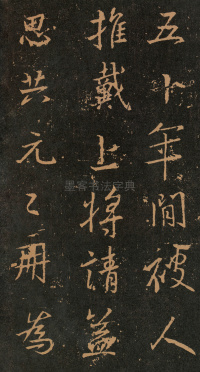 五十年間被人
推戴上將請益
思共元〻冊為
墨客书法字典